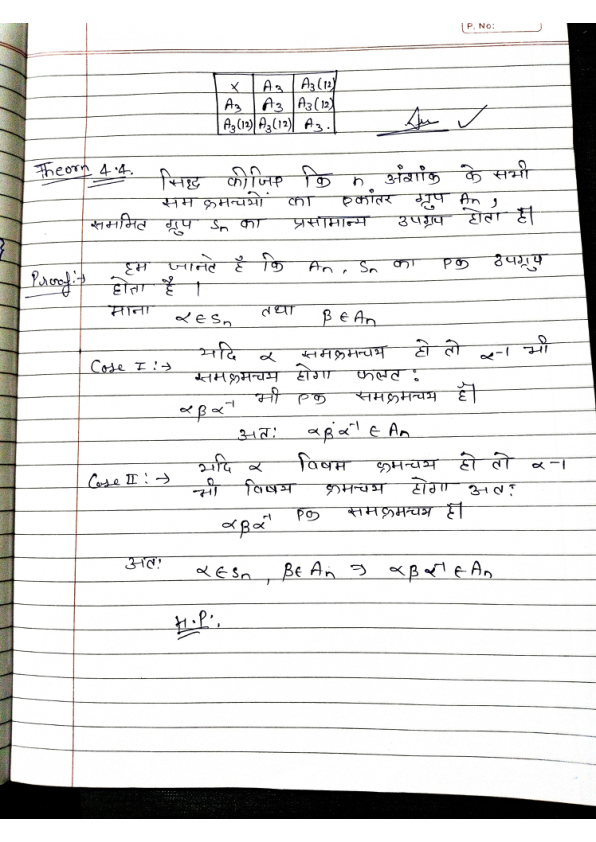 P. No:
X A₃ A₃(12)
A₃ A₃ A₃(12)
A₃(12) A₃(12) A₃.
Theorm 4.4. सिद्ध कीजिए कि n अंशांक के सभी
सम क्रमचयों का एकांतर ग्रुप An,
सममित ग्रुप Sn का प्रसामान्य उपग्रुप होता है।
Proof:→ हम जानते है कि An, Sn का एक उपग्रुप
होता है ।
माना α∈Sn तथा β∈An
Case I:→ यदि α समक्रमचय हो तो α-1 भी
समक्रमचय होगा फलत:
αβα⁻¹ भी एक समक्रमचय है।
अतः αβα⁻¹ ∈ An
Case II:→ यदि α विषम क्रमचय हो तो α-1
भी विषय क्रमचय होगा अतः
αβα⁻¹ एक समक्रमचय है।
अतः α∈Sn, β∈An ⇒ αβα⁻¹ ∈ An
H.P:.